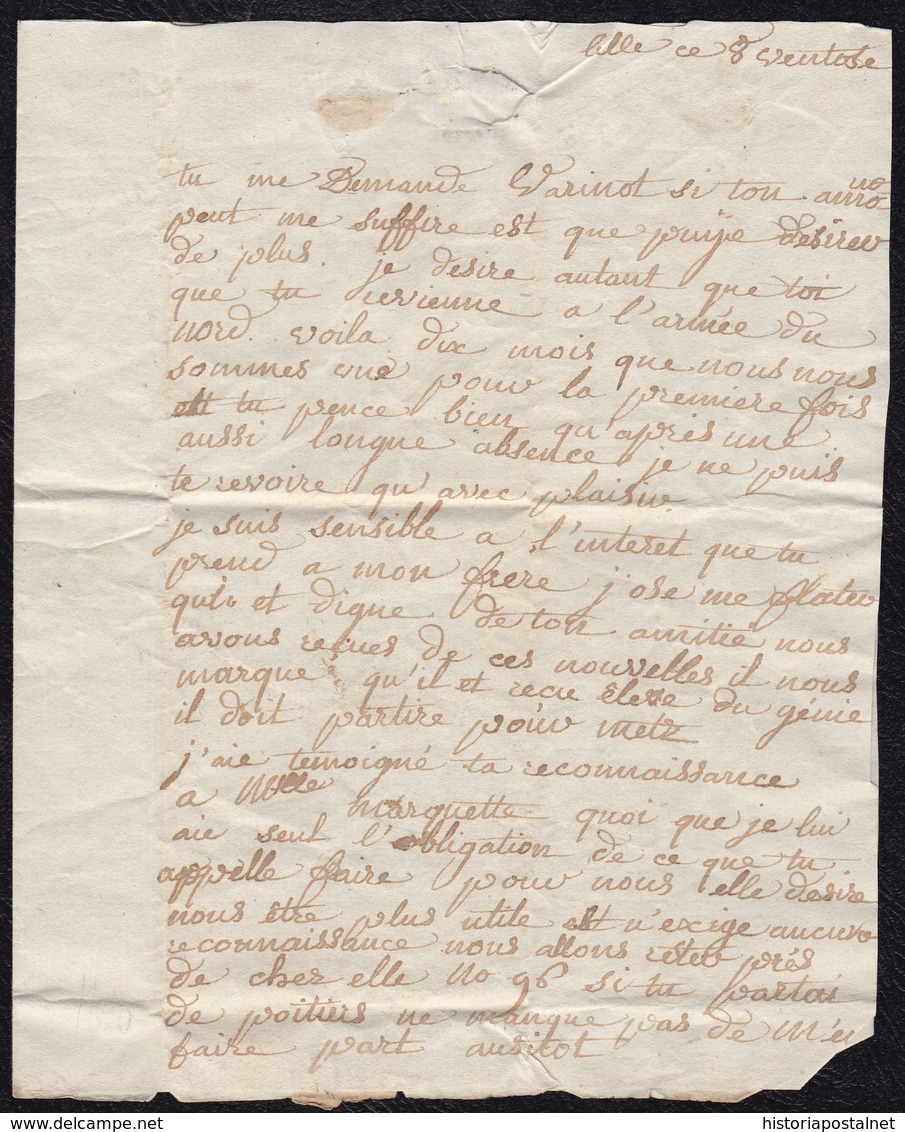 lille ce 8 ventose
tu me Demande Varinot si ton amo
peut me suffire est que puije desirer
de plus. je desire autant que toi
que tu revienne a l'armée du
nord. voila dix mois que nous nous
sommes vue pour la premiere fois
est tu pence bien qu'après une
aussi longue absence je ne puis
te revoire qu'avec plaisir.
je suis sensible a l'interet que tu
prend a mon frere j'ose me flater
qu'il et digne de ton amitié nous
avons reçues de ces nouvelles il nous
marque qu'il et recu éleve du génie
il doit partire pour metz
j'aie temoigné ta reconnaissance
a Mlle marquette quoi que je lui
aie seul l'obligation de ce que tu
appelle faire pour nous elle desire
nous être plus utile est n'exige aucune
reconnaissance nous allons rester près
de chez elle No 96 si tu partai
de poitiers ne manque pas de m'en
faire part ausitot
historiapostalnet